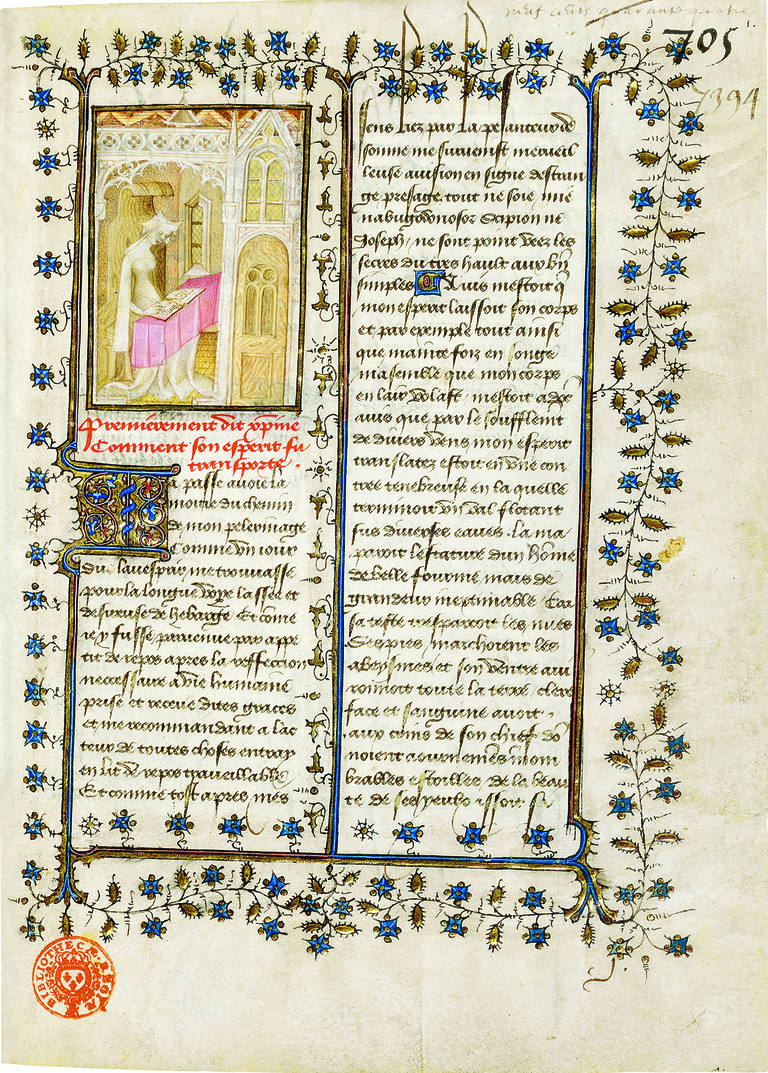 neuf cents quarante quatre
705
7394
Premierement dit xpine
Comment son esperit fu
transporté .
Ja passe avoie la
moitie du chemin
de mon pelerinage
Comme un iour
du lavesprir me trouvasse
pour la longue voye lassee et
desireuse de heberge Et come
ie y fusse parvenue par appe
tit de repos apres la reffection
necessaire a vie humaine
prise et receue dites graces
et me recommandant a lac
teur de toutes choses entray
en lit de repos traveillable
Et comme tost apres mes
sens liez par la pesanteur de
somme me survenist merveil
leuse avision en signe destran
ge presage tout ne soie mie
nabugodnosor Scipion ne
Joseph / ne sont point veez les
secres du tres hault aux bn
simples Avis mestoit q
mon esperit laissoit son corps
et par exemple tout ainsi
que mainte foiz en songe
ma semble que mon corps
en lair volast / mestoit adoc
avis que par le soufflemt
de divers vens mon esperit
translatez estoit en une con
tree tenebreuse en la quelle
terminoit un val flotant
sus diverses eaues . la ma
paroit lestature dun home
de belle fourme mais de
grandeur inextimable Car
sa teste trespassoit les nues
Ses piez marchoient les
abeysmes et son ventre avi
ronnoit toute la terre / clere
face et sanguine avoit .
aux crins de son chief do
noient aournemens inom
brables estoilles de la beau
te de ses yeulx issoit si
BIBLIOTHECÆ REGIÆ